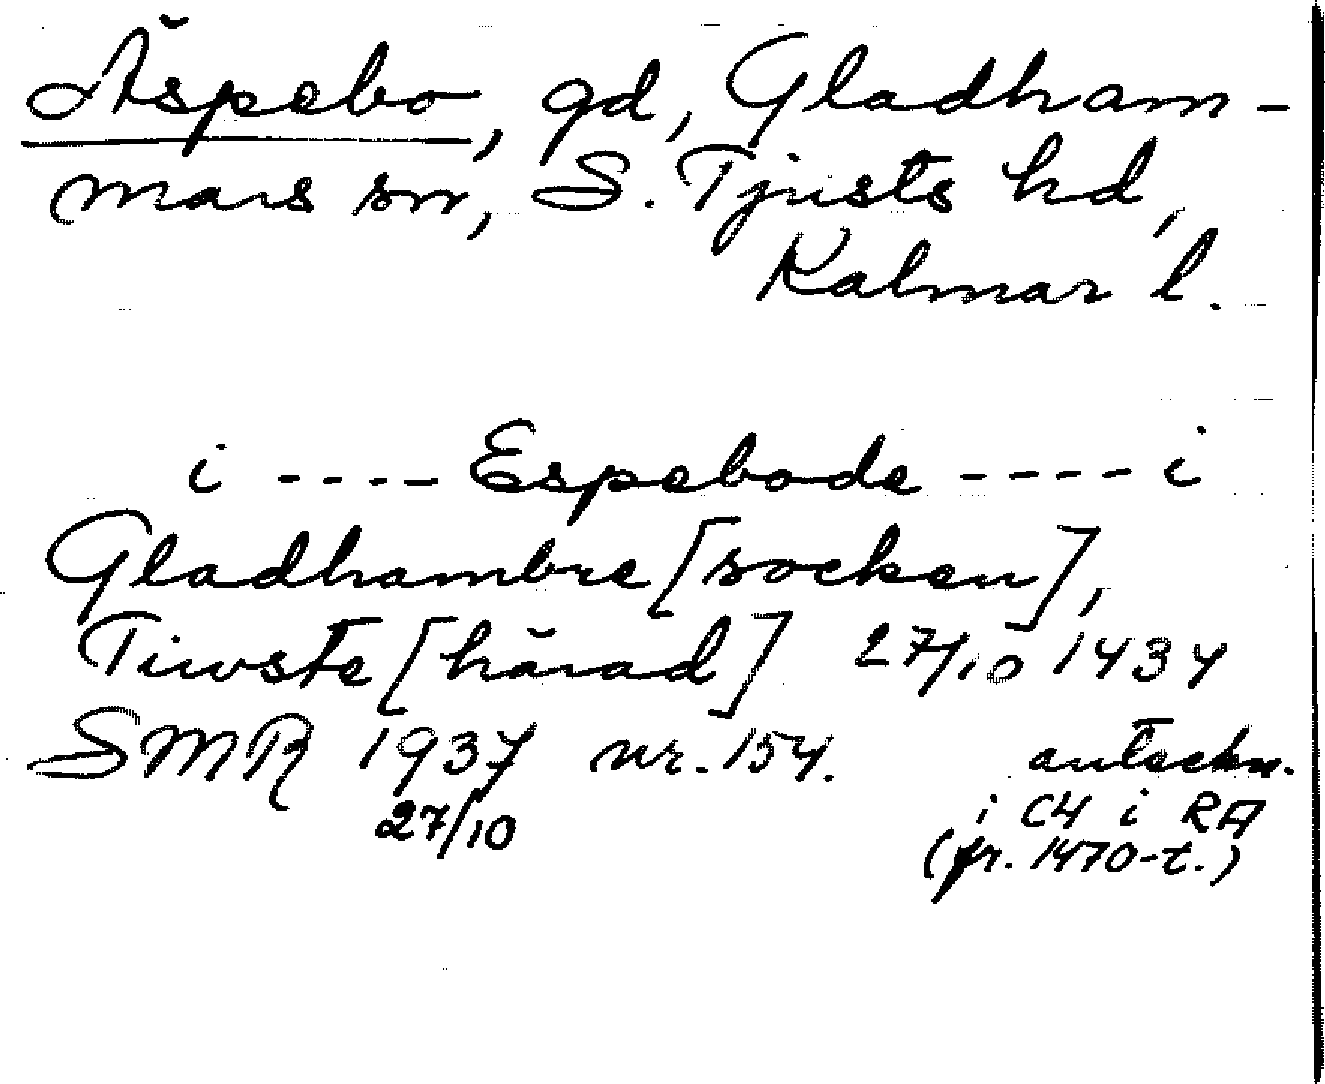 Äspebo, gd, Gladham-
mars sn, S. Tjusts hd,
Kalmar l.
i ---- Espebode ---- i
Gladhambre [socken],
Tiwste [härad] 27/10 1434
SMR 1937 nr. 154.
27/10
anteckn.
i C4 i RA
(fr. 1470-t.)